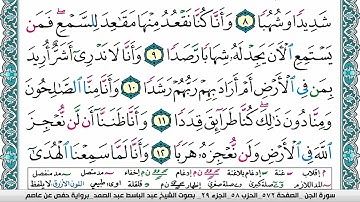 شَدِيدًا وَشُهُبًا ٨ وَأَنَّا كُنَّا نَقْعُدُ مِنْهَا مَقَٰعِدَ لِلسَّمْعِ ۖ فَمَن
يَسْتَمِعِ ٱلْـَٔانَ يَجِدْ لَهُۥ شِهَابًا رَّصَدًا ٩ وَأَنَّا لَا نَدْرِىٓ أَشَرٌّ أُرِيدَ
بِمَن فِى ٱلْأَرْضِ أَمْ أَرَادَ بِهِمْ رَبُّهُمْ رَشَدًا ١٠ وَأَنَّا مِنَّا ٱلصَّٰلِحُونَ
وَمِنَّا دُونَ ذَٰلِكَ ۖ كُنَّا طَرَآئِقَ قِدَدًا ١١ وَأَنَّا ظَنَنَّآ أَن لَّن نُّعْجِزَ
ٱللَّهَ فِى ٱلْأَرْضِ وَلَن نُّعْجِزَهُۥ هَرَبًا ١٢ وَأَنَّا لَمَّا سَمِعْنَا ٱلْهُدَىٰٓ
سورة الجن - الصفحة ٥٧٢ - الحزب ٥٨ - الجزء ٢٩ - بصوت الشيخ عبد الباسط عبد الصمد. برواية حفص عن عاصم